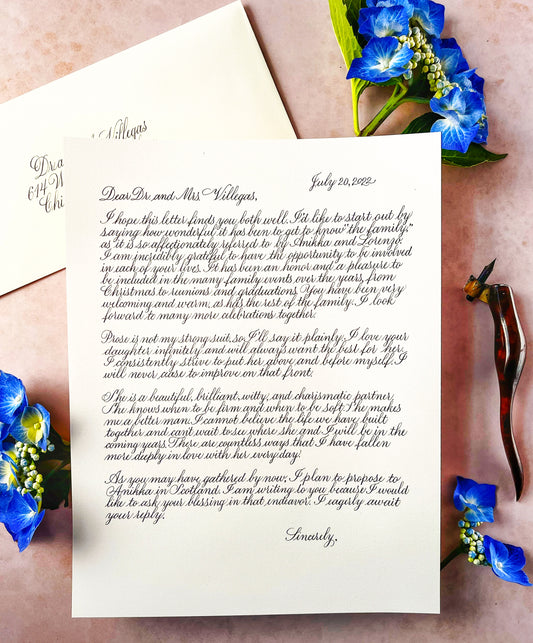 Dr. and Villegas
614 W
Chi
July 20, 2022
Dear Dr. and Mrs Villegas,
I hope this letter finds you both well. I'd like to start out by
saying how wonderful it has been to get to know "the family,"
as it is so affectionately referred to by Anikka and Lorenzo.
I am incredibly grateful to have the opportunity to be involved
in each of your lives. It has been an honor and a pleasure to
be included in the many family events over the years, from
Christmas to reunions and graduations. You have been very
welcoming and warm, as has the rest of the family. I look
forward to many more celebrations together.
Prose is not my strong suit, so I'll say it plainly. I love your
daughter infinitely and will always want the best for her.
I consistently strive to put her above and before myself. I
will never cease to improve on that front.
She is a beautiful, brilliant, witty, and charismatic partner.
She knows when to be firm and when to be soft. She makes
me a better man. I cannot believe the life we have built
together and can't wait to see where she and I will be in the
coming years. There are countless ways that I have fallen
more deeply in love with her every day.
As you may have gathered by now, I plan to propose to
Anikka in Scotland. I am writing to you because I would
like to ask your blessing in that endeavor. I eagerly await
your reply.
Sincerely,